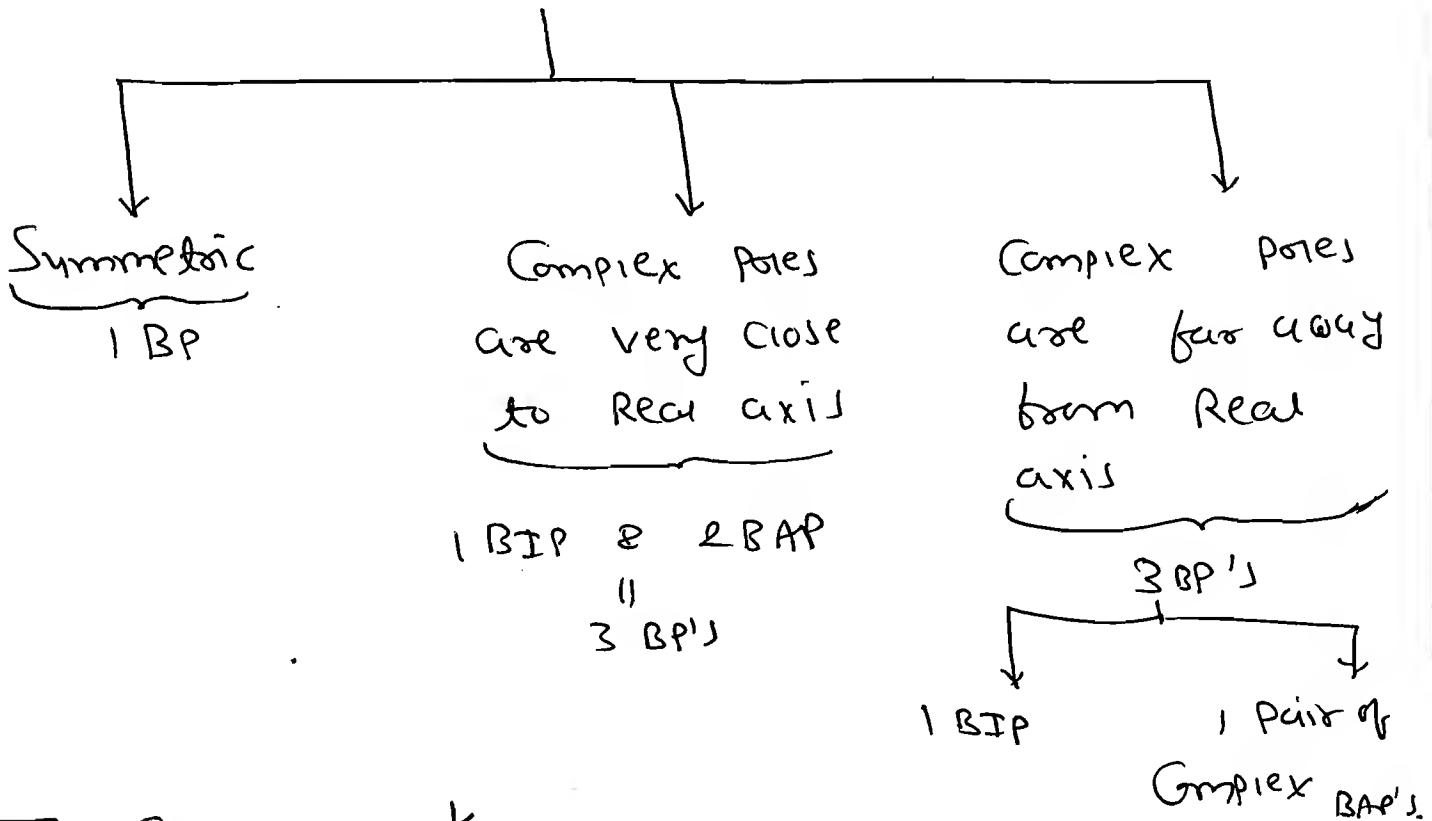 Symmetric
1 BP
Complex poles
are very close
to Real axis
1 BIP & 2 BAP
||
3 BP's
Complex poles
are far away
from Real
axis
3 BP's
1 BIP
1 pair of
Complex BAP's.
k